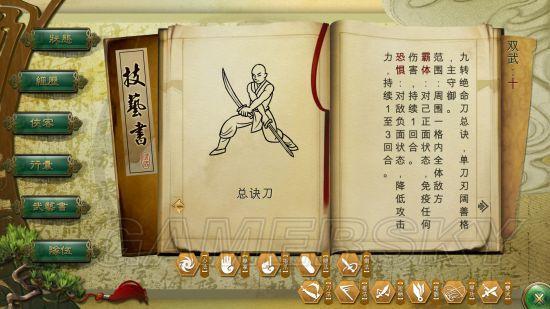 狀態
經歷
俠客
行囊
武藝書
隊伍
技藝書
总诀刀
双武：十
九转绝命刀总诀，单刀刃阔善格
，主守御。
范围：周围一格内全体敌方
霸体：对己正面状态，免疫任何
伤害，持续1回合。
恐惧：对敌负面状态，降低攻击
力，持续1至3回合。
GAMERSKY